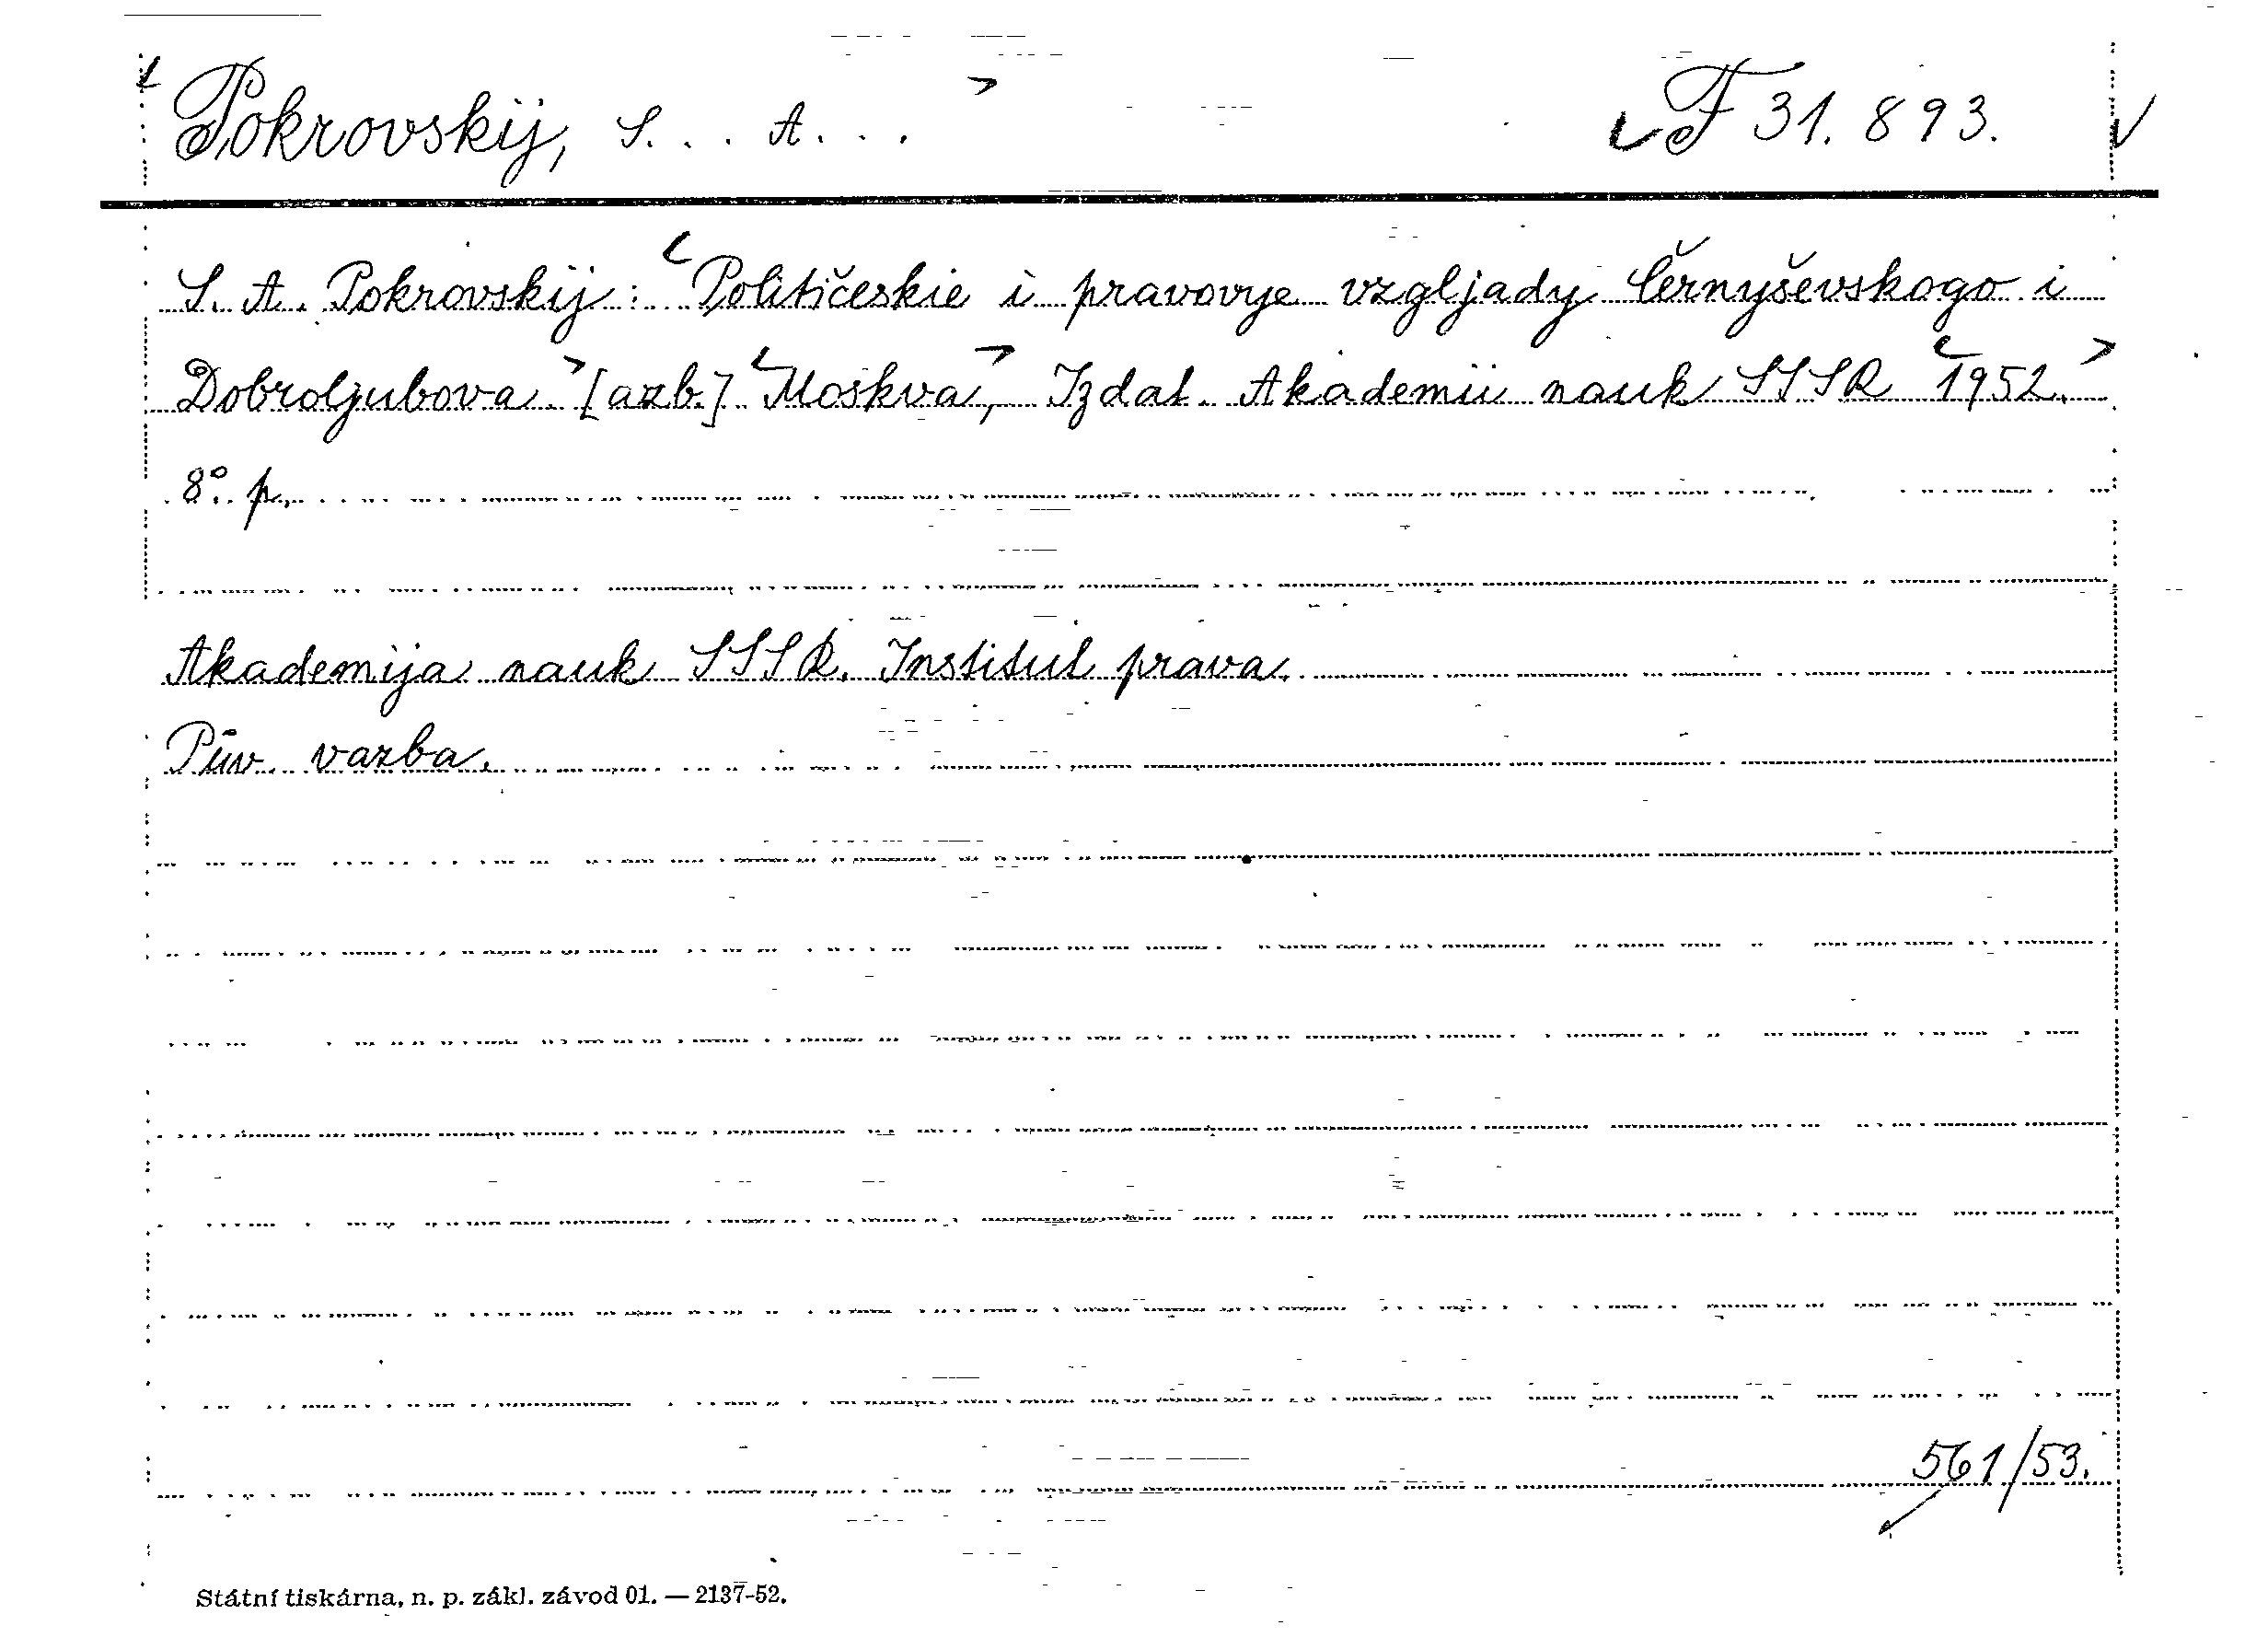 Pokrovskij, S. . . A. . .
F 31.893.
S. A. Pokrovskij: Političeskie i pravovye vzgljady Černyševskogo i
Dobroljubova. [azb.] Moskva, Izdat. Akademii nauk SSSR 1952.
8°. p.
Akademija nauk SSSR. Institut prava.
Pův. vazba.
561/53.
Státní tiskárna, n. p. zákl. závod 01. — 2137-52.